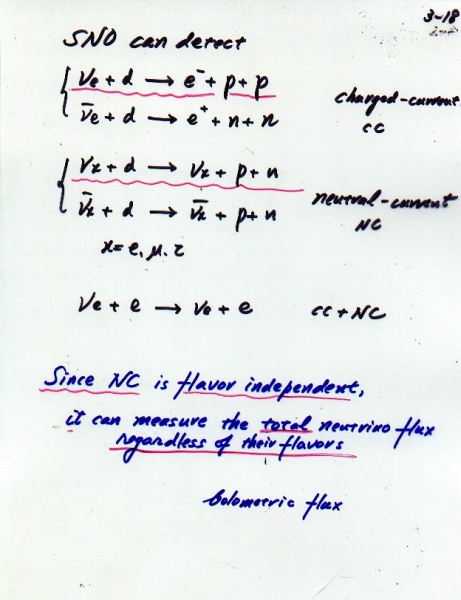 3-18
SNO can detect
νe + d → e⁻ + p + p
charged-current
ν̄e + d → e⁺ + n + n
CC
νx + d → νx + p + n
neutral-current
ν̄x + d → ν̄x + p + n
NC
x = e, μ, τ
νe + e → νe + e CC + NC
Since NC is flavor independent,
it can measure the total neutrino flux
regardless of their flavors
bolometric flux